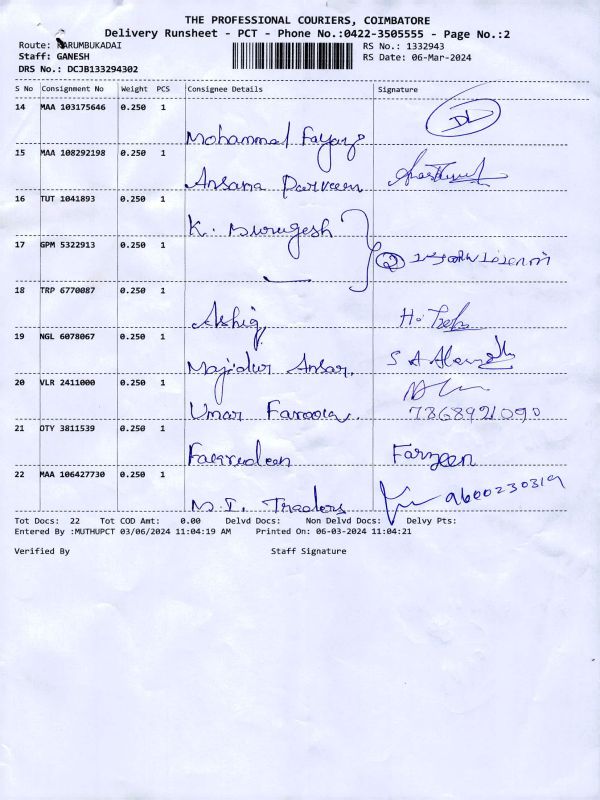 THE PROFESSIONAL COURIERS, COIMBATORE
Delivery Runsheet - PCT - Phone No.:0422-3505555 - Page No.:2
Route: KARUMBUKADAI RS No.: 1332943
Staff: GANESH RS Date: 06-Mar-2024
DRS No.: DCJB133294302
S No Consignment No Weight PCS Consignee Details Signature
14 MAA 103175646 0.250 1
Mohammed Fayaz
15 MAA 108292198 0.250 1
Ansana Parveen
16 TUT 1041893 0.250 1
K. Murugesh
17 GPM 5322913 0.250 1
2
18 TRP 6770087 0.250 1
Ashiq
19 NGL 6078067 0.250 1
Majidur Ansar. S A
20 VLR 2411000 0.250 1
Umar Farooq. 7868921090
21 OTY 3811539 0.250 1
Fakrudeen Farzeen
22 MAA 106427730 0.250 1
M.I. Traders 9600230319
Tot Docs: 22 Tot COD Amt: 0.00 Delvd Docs: Non Delvd Docs: Delvy Pts:
Entered By :MUTHUPCT 03/06/2024 11:04:19 AM Printed On: 06-03-2024 11:04:21
Verified By Staff Signature